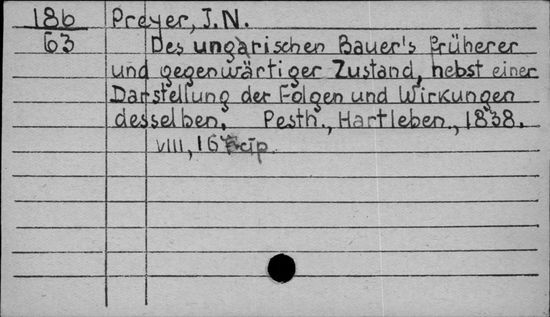 186 Preyer, J.N.
63 Des ungarischen Bauer's früherer
und gegenwärtiger Zustand, nebst einer
Darstellung der Folgen und Wirkungen
desselben. Pesth., Hartleben., 1838.
VIII, 16